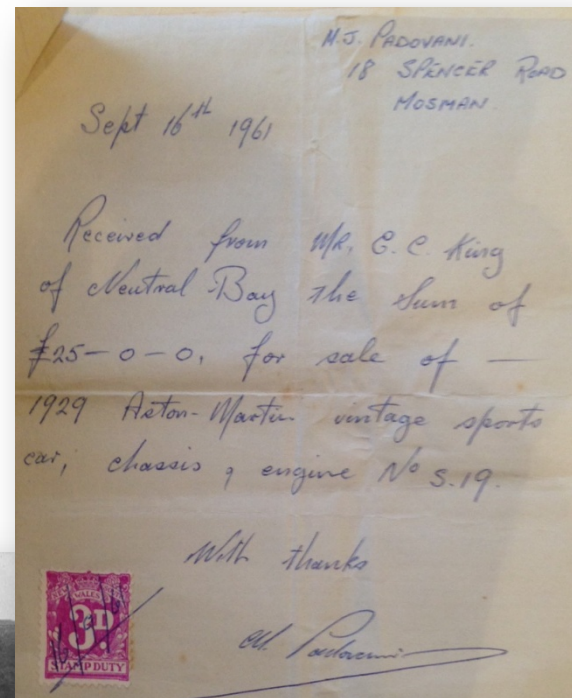 M.J. PADOVANI.
18 SPENCER ROAD
MOSMAN
Sept 16th 1961
Received from Mr. E. C. King
of Neutral Bay the Sum of
£25-0-0, for sale of —
1929 Aston-Martin vintage sports
car, chassis & engine No S.19.
With thanks
M. Padovani
WALES
3D
STAMP DUTY